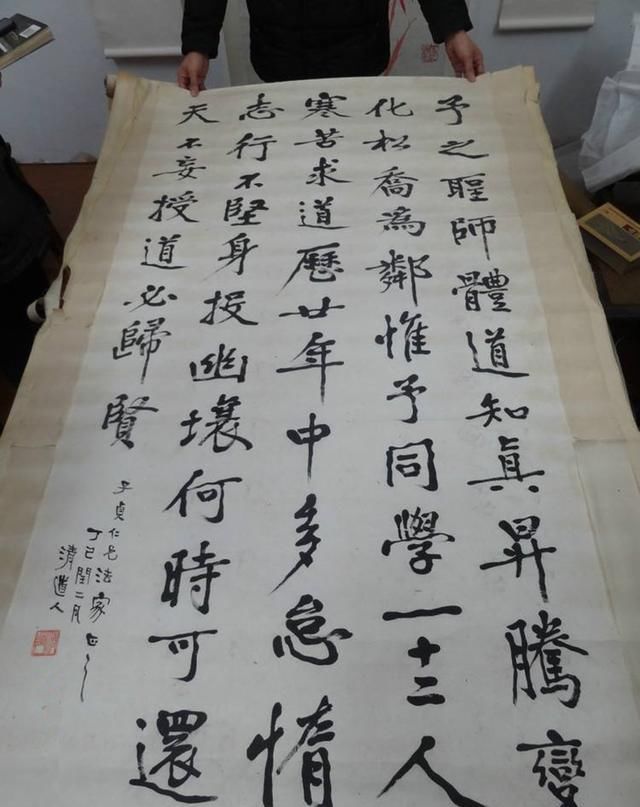 予之聖師體道知眞昇騰變
化松喬為鄰惟予同學一十二人
寒苦求道歷廿年中多怠惰
志行不堅身投幽壤何時可還
天不妄授道必歸賢
子貞仁兄法家正之
丁巳閏二月
清道人